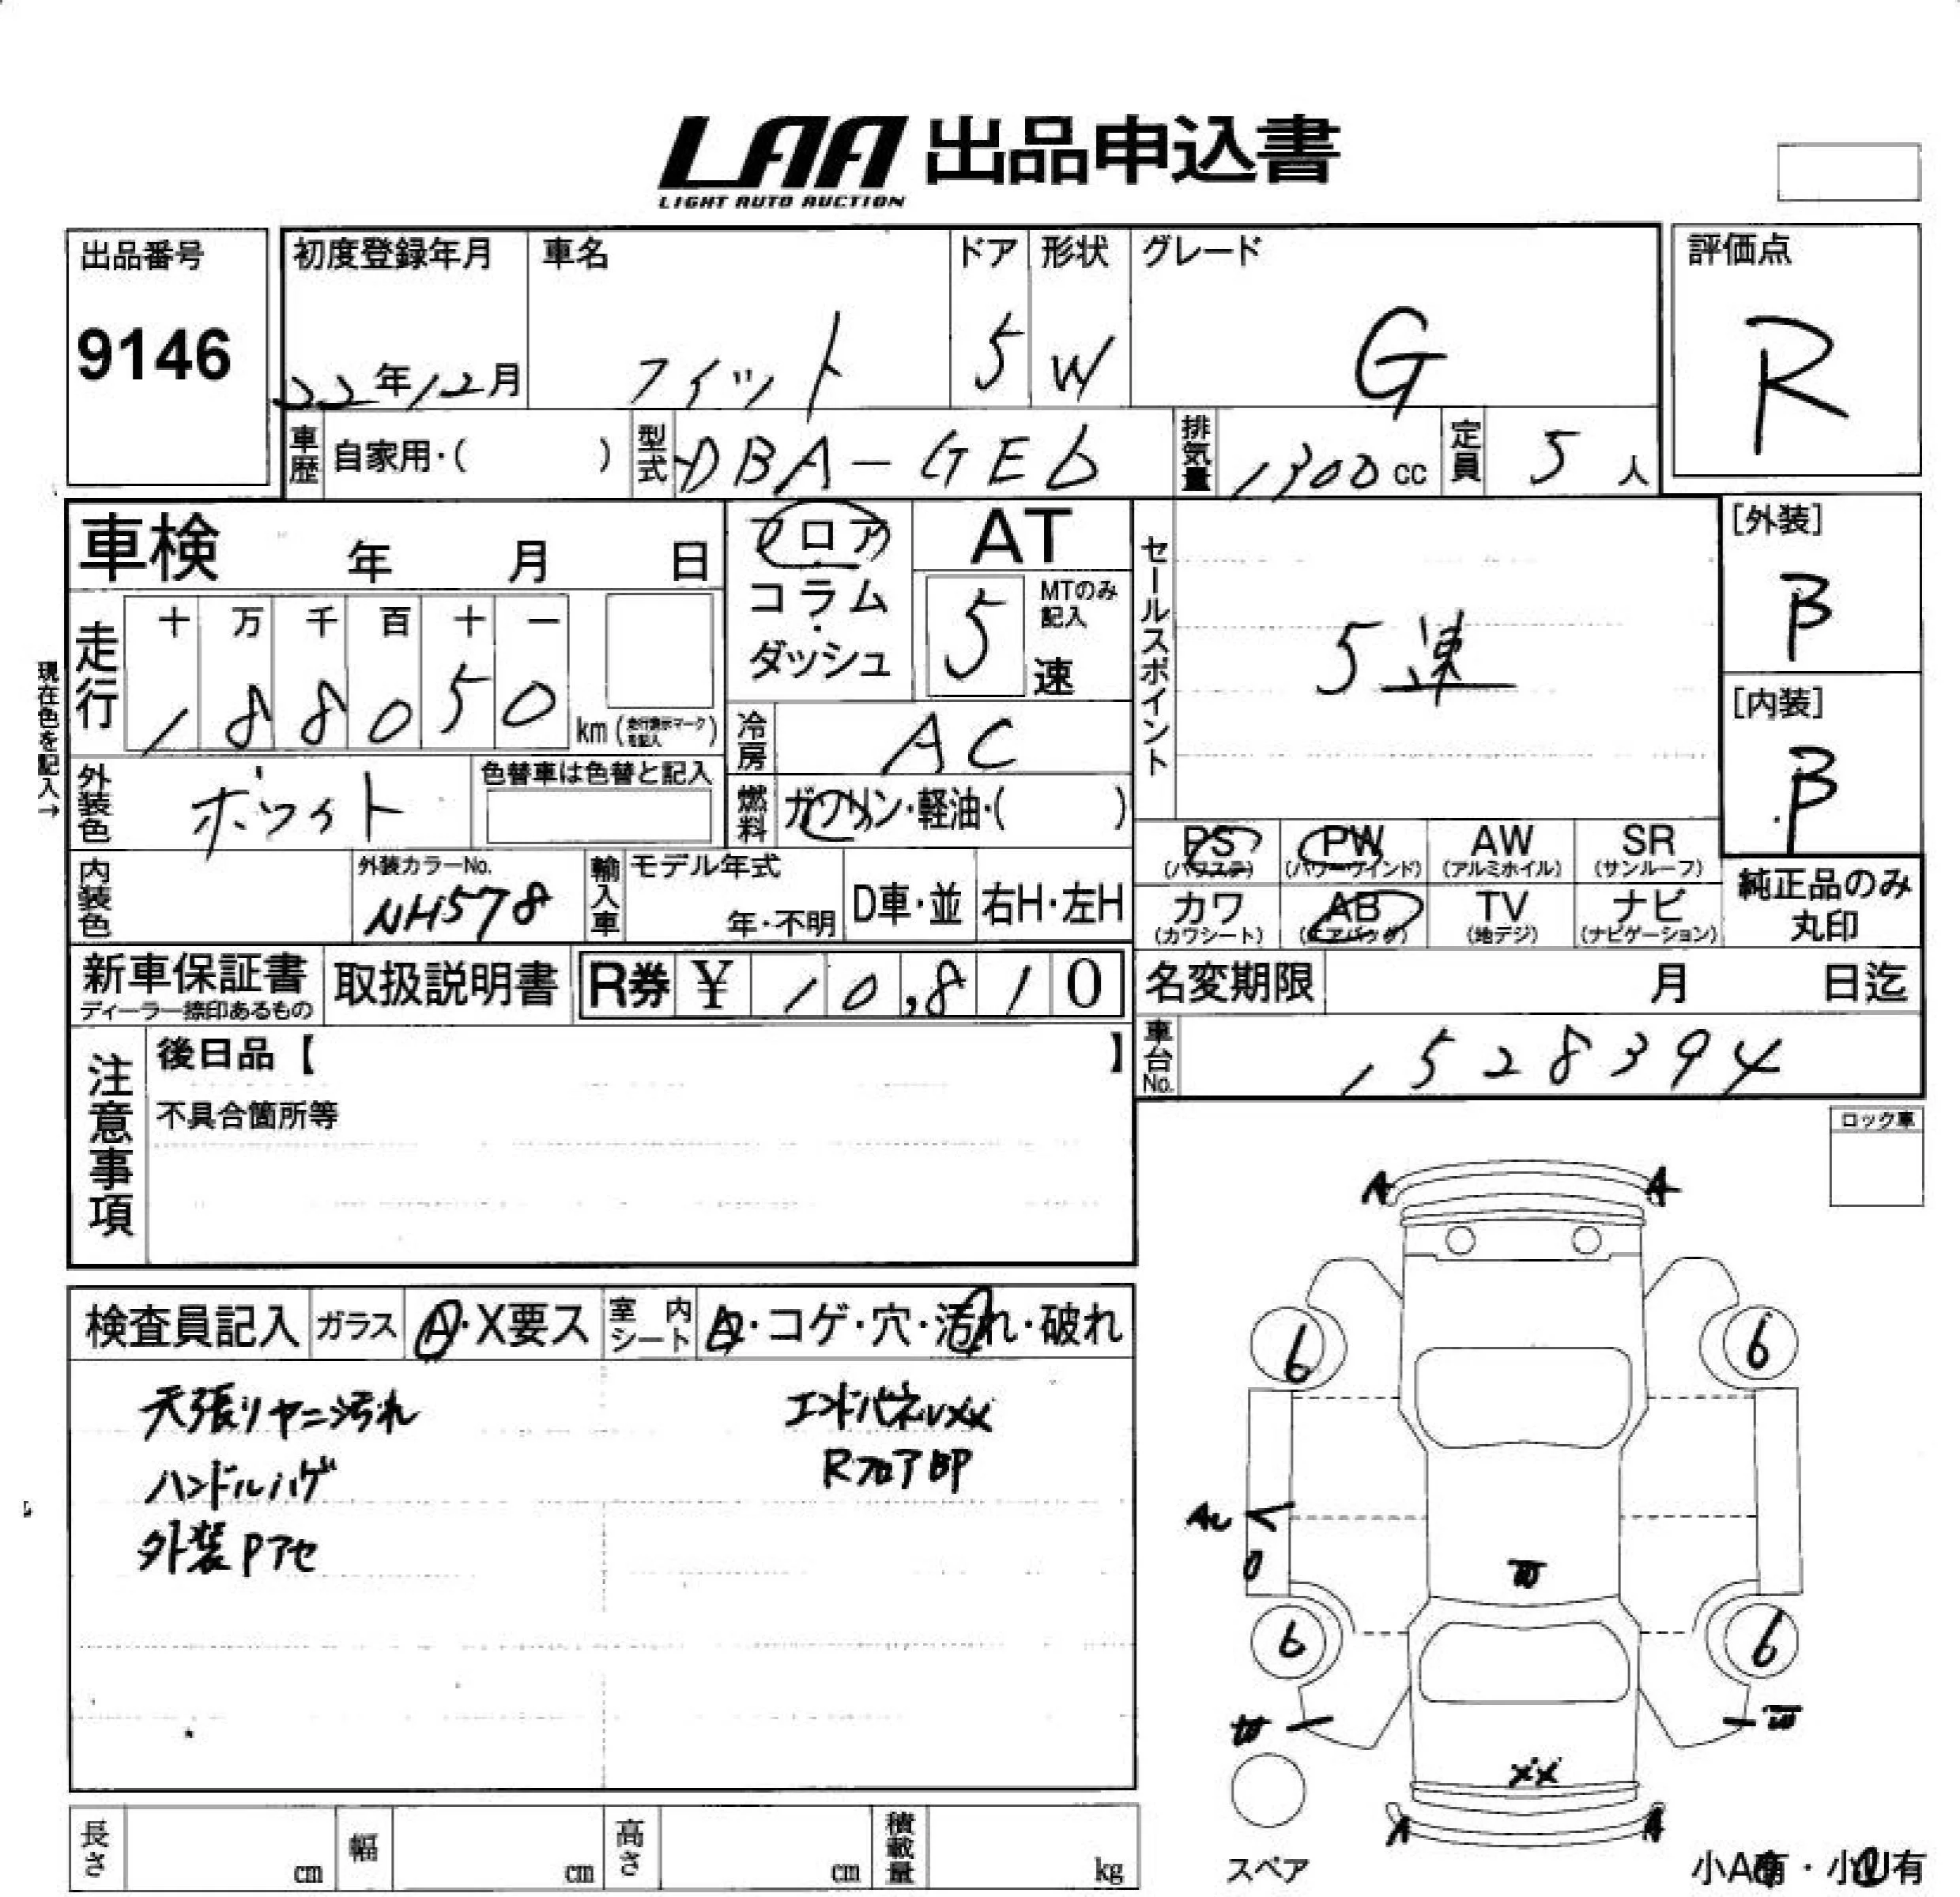 LAA 出品申込書
LIGHT AUTO AUCTION
出品番号
9146
初度登録年月
22年12月
車名
フィット
ドア
5
形状
W
グレード
G
評価点
R
車歴 自家用・( )
型式 DBA-GE6
排気量 1300cc
定員 5人
車検 年 月 日
フロア
コラム
・
ダッシュ
AT
5
MTのみ
記入
速
セールスポイント
5速
[外装]
B
[内装]
B
現在色を記入→
走行
十 万 千 百 十 一
1 8 8 0 5 0 km
冷房 AC
外装色 ホワイト
色替車は色替と記入
燃料 ガソリン・軽油・( )
PS PW AW SR
(パワステ) (パワーウインド) (アルミホイル) (サンルーフ)
カワ AB TV ナビ
(カワシート) (エアバッグ) (地デジ) (ナビゲーション)
純正品のみ
丸印
内装色
外装カラーNo.
NH578
輸入車
モデル年式
年・不明
D車・並
右H・左H
新車保証書
ディーラー捺印あるもの
取扱説明書
R券 ¥ 10,810
名変期限 月 日迄
車台No. 1528394
注意事項
後日品【 】
不具合箇所等
ロック車
検査員記入
ガラス
A・X要ス
室内シート
A・コゲ・穴・汚れ・破れ
天張りヤニ汚れ
ハンドルハゲ
外装Pアセ
エンドパネルXX
Rフロア印
A A
6 6
AU
W
6 6
W W
XX
A A
スペア
小A有・小U有
長さ cm
幅 cm
高さ cm
積載量 kg